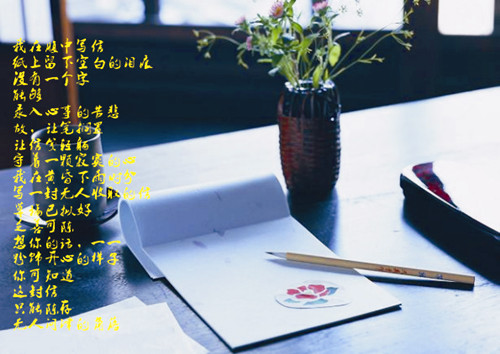 我在脑中写信
纸上留下空白的泪痕
没有一个字
能够
录入心草的苦悲
故，让笔搁置
让信笺轻躺
守着一颗寂寞的心
我在黄昏下雨时分
写一封无人收取的信
草稿已拟好
无喜可陈
想你的话，一一
粉饰开心的样子
你可知道
这封信
只能陈存
无人问津的